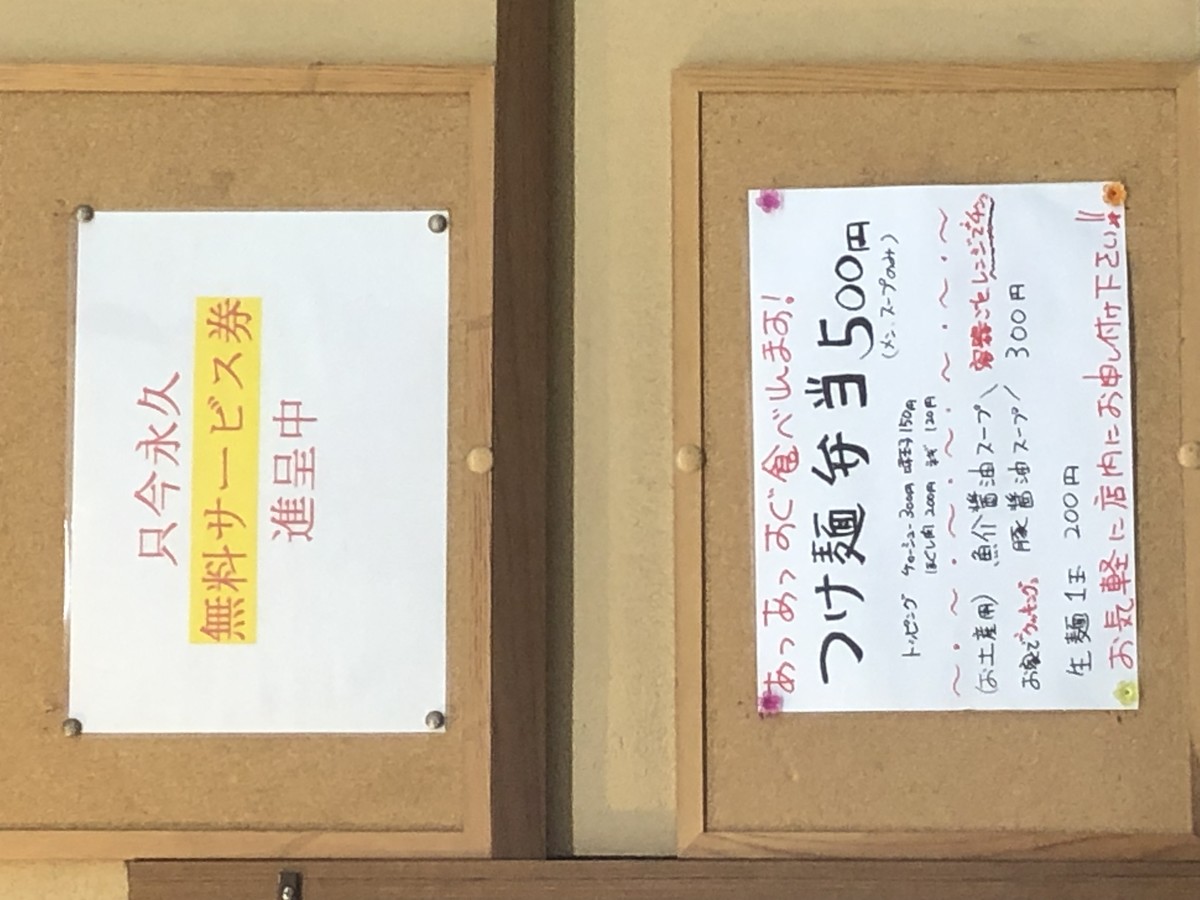 只今永久
無料サービス券
進呈中
あっあっ すぐ食べれます!
つけ麺弁当500円
(メン、スープのみ)
トッピング チャーシュー300円 味玉子150円
ほぐし肉 200円 ネギ 120円
~・~・~・~・~・~・~・~
(お土産用) 魚介醤油スープ 容器ごとレンジでチン。
お家でクッキング。 豚醤油スープ 300円
生麺1玉 200円
お気軽に店内にお申し付け下さい!!